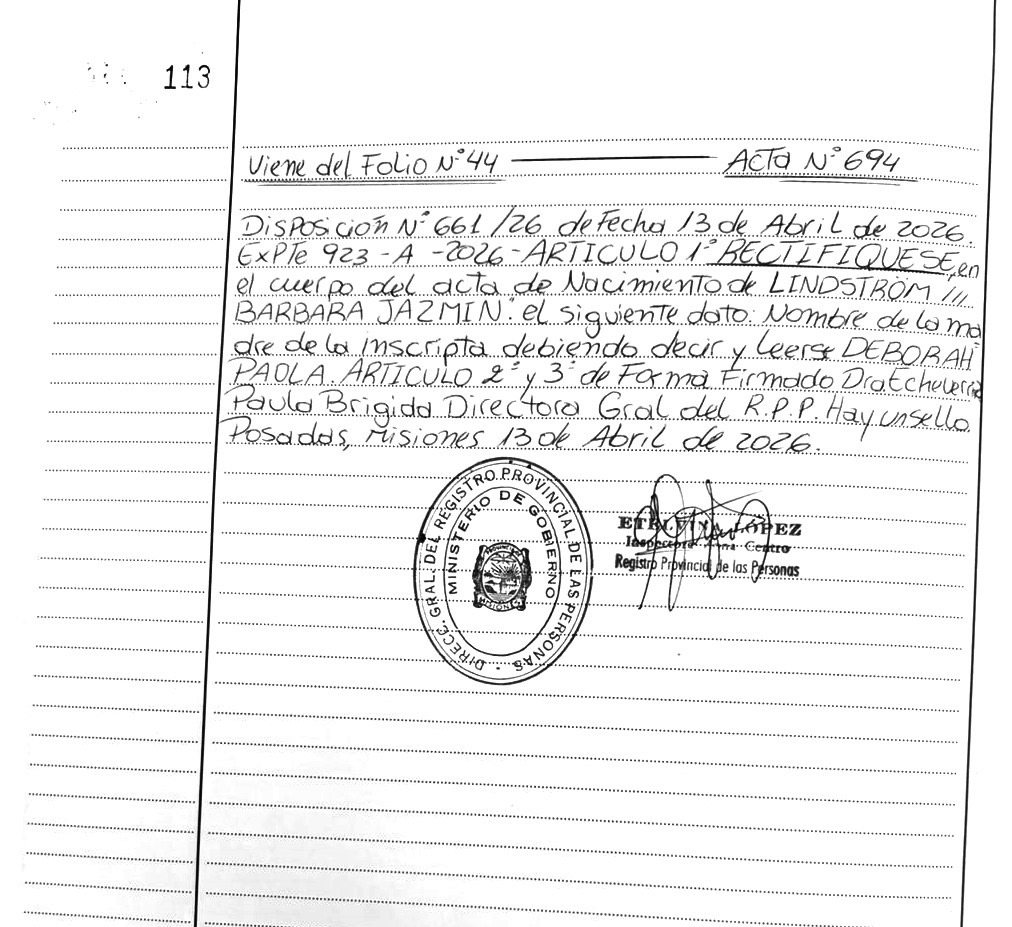 113
Viene del Folio N° 44 ——— Acta N° 694
Disposición N° 661/26 de fecha 13 de Abril de 2026.
Expte 923 - A - 2026 - ARTICULO 1° RECTIFIQUESE, en
el cuerpo del acta de Nacimiento de LINDSTRÖM ///
BARBARA JAZMIN: el siguiente dato: Nombre de la ma
dre de la inscripta debiendo decir y leerse DEBORAH
PAOLA. ARTICULO 2° y 3° de Forma Firmado Dra Echeverria
Paula Brigida Directora Gral del R.P.P. Hay un sello
Posadas, Misiones 13 de Abril de 2026.
DIRECC. GRAL. DEL REGISTRO PROVINCIAL DE LAS PERSONAS
MINISTERIO DE GOBIERNO
MISIONES
ETELVINA LÓPEZ
Inspectora Centro
Registro Provincial de las Personas